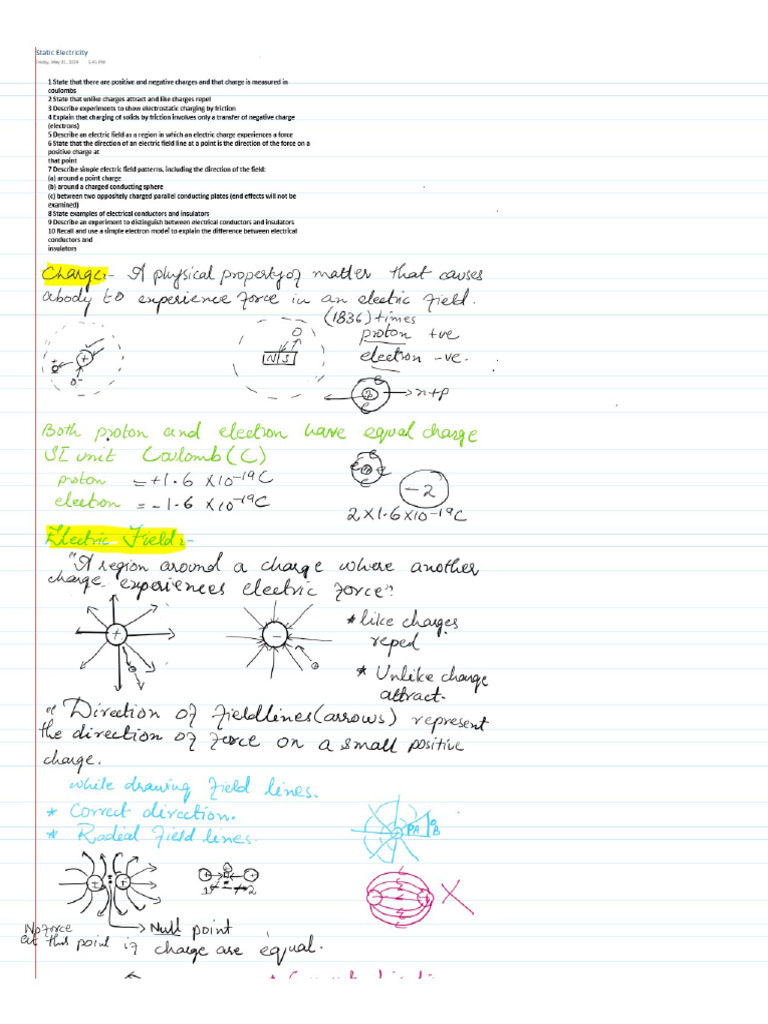 Static Electricity
Friday, May 31, 2024 5:41 PM
1 State that there are positive and negative charges and that charge is measured in
coulombs
2 State that unlike charges attract and like charges repel
3 Describe experiments to show electrostatic charging by friction
4 Explain that charging of solids by friction involves only a transfer of negative charge
(electrons)
5 Describe an electric field as a region in which an electric charge experiences a force
6 State that the direction of an electric field line at a point is the direction of the force on a
positive charge at
that point
7 Describe simple electric field patterns, including the direction of the field:
(a) around a point charge
(b) around a charged conducting sphere
(c) between two oppositely charged parallel conducting plates (end effects will not be
examined)
8 State examples of electrical conductors and insulators
9 Describe an experiment to distinguish between electrical conductors and insulators
10 Recall and use a simple electron model to explain the difference between electrical
conductors and
insulators
Charge:- A physical property of matter that causes
a body to experience force in an electric field.
(1836) times
proton +ve
electron -ve.
N S
n+p
Both proton and electron have equal charge
SI unit Coulomb (C)
proton = +1.6 × 10⁻¹⁹C
electron = -1.6 × 10⁻¹⁹C
-2
2 × 1.6 × 10⁻¹⁹C
Electric Field:-
"A region around a charge where another
charge experiences electric force"
+
-
* like charges
repel
* Unlike charge
attract.
Direction of fieldlines (arrows) represent
the direction of force on a small positive
charge.
while drawing field lines.
* Correct direction.
* Radial field lines.
PA B
+ +
1 2
Null point
No force
at this point if charge are equal.